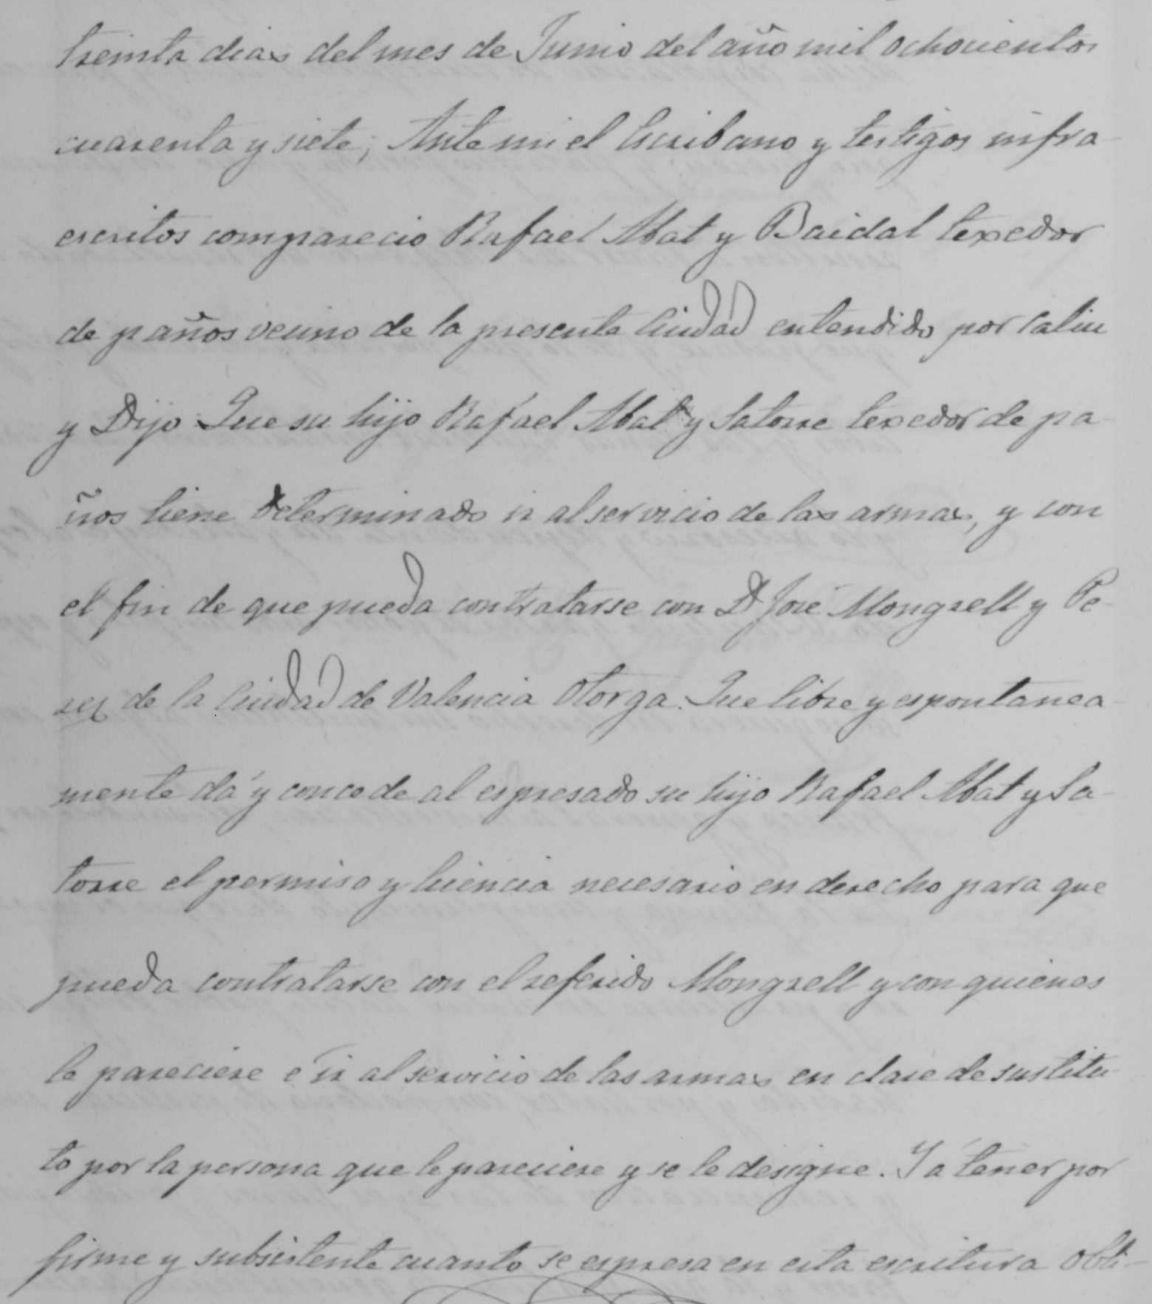 treinta dias del mes de Junio del año mil ochocientos
cuarenta y siete; Ante mi el Escribano y testigos infra-
escritos comparecio Rafael Abat y Baidal texedor
de paños vecino de la presente Ciudad entendido por
y Dijo: Que su hijo Rafael Abat y Satorre texedor de pa-
ños tiene determinado ir al servicio de las armas, y con
el fin de que pueda contratarse con Dn José Mongrell y Pe-
rez de la Ciudad de Valencia Otorga: Que libre y espontanea-
mente dá y concede al espresado su hijo Rafael Abat y Sa-
torre el permiso y licencia necesario en derecho para que
pueda contratarse con el referido Mongrell y con quienes
le pareciere é ir al servicio de las armas en clase de sustitu-
to por la persona que le pareciere y se le designe. Y á tener por
firme y subsistente cuanto se espresa en esta escritura obli-